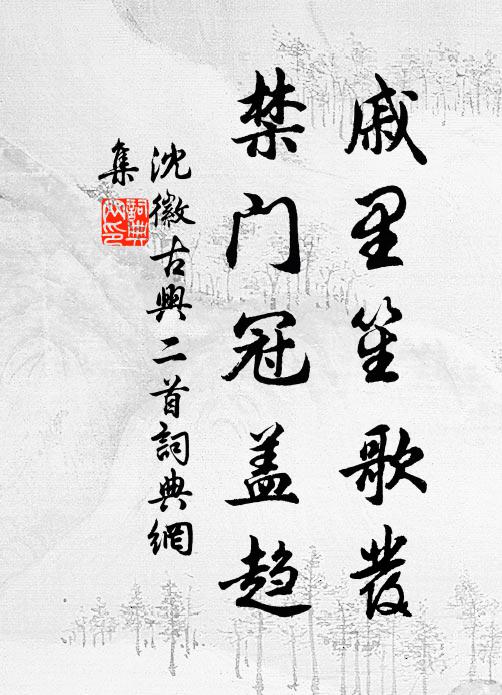 戚里笙歌發
禁门冠盖趋
沈徽古興二首詞典網
集